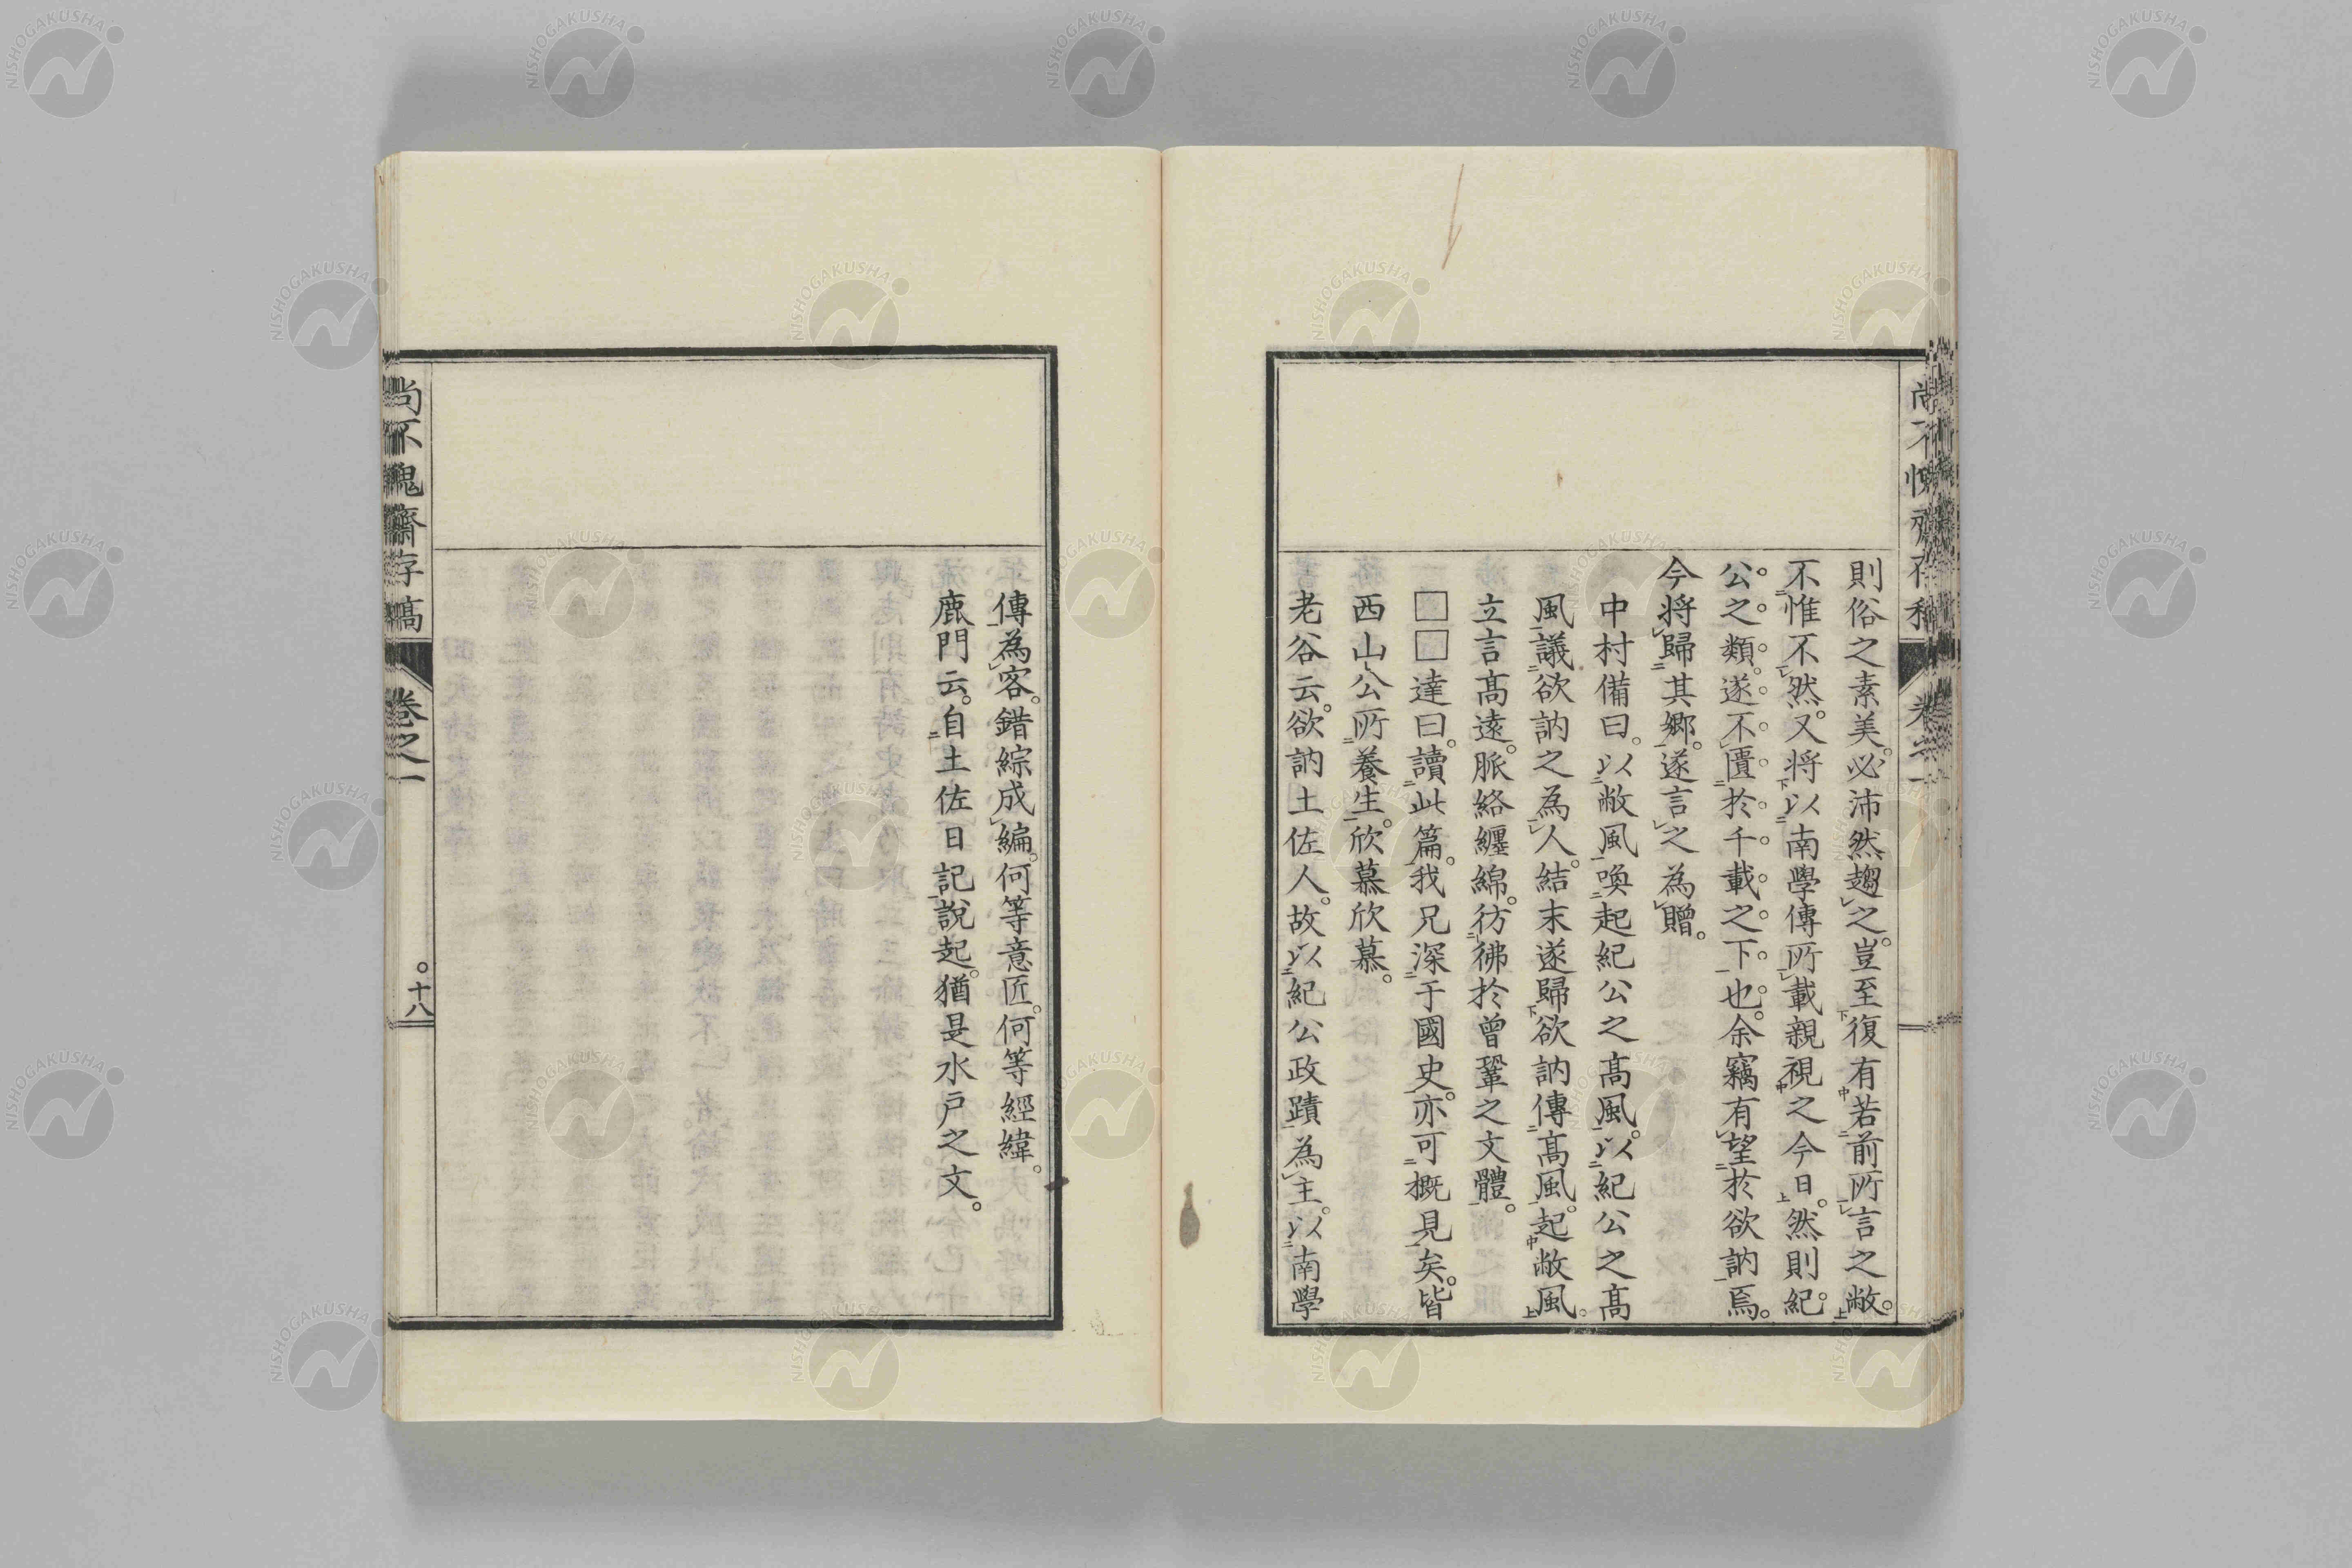 則俗之素美。必沛然趨之。豈至復有若前所言之敝。
不惟不然。又将以南學傳所載親視之今日。然則紀
公之類。遂不匱於千載之下也。余竊有望於欲訥焉。
今将歸其郷。遂言之為贈。
中村備曰。以敝風喚起紀公之髙風。以紀公之髙
風議欲訥之為人。結末遂歸欲訥傳髙風。起敝風。
立言髙遠。脈絡纒綿。彷彿於曾鞏之文體。
□□達曰。讀此篇。我兄深于國史。亦可概見矣。皆
西山公所養生。欣慕欣慕。
老谷云。欲訥土佐人。故以紀公政蹟為主。以南學
傳為客。錯綜成編。何等意匠。何等經緯。
鹿門云。自土佐日記說起。猶是水戸之文。
尚不愧齋存稿
卷之一
十八
NISHOGAKUSHA